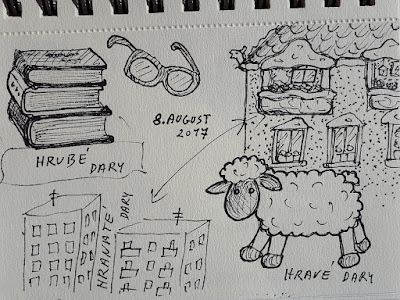 8. AUGUST
2017
HRUBÉ
DARY
HRANATÉ
DARY
HRAVÉ DARY